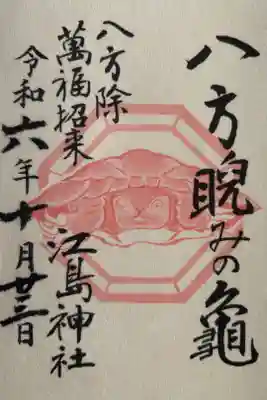 八方睨みの亀
八方除
萬福招来
江島神社
令和六年十月廿三日